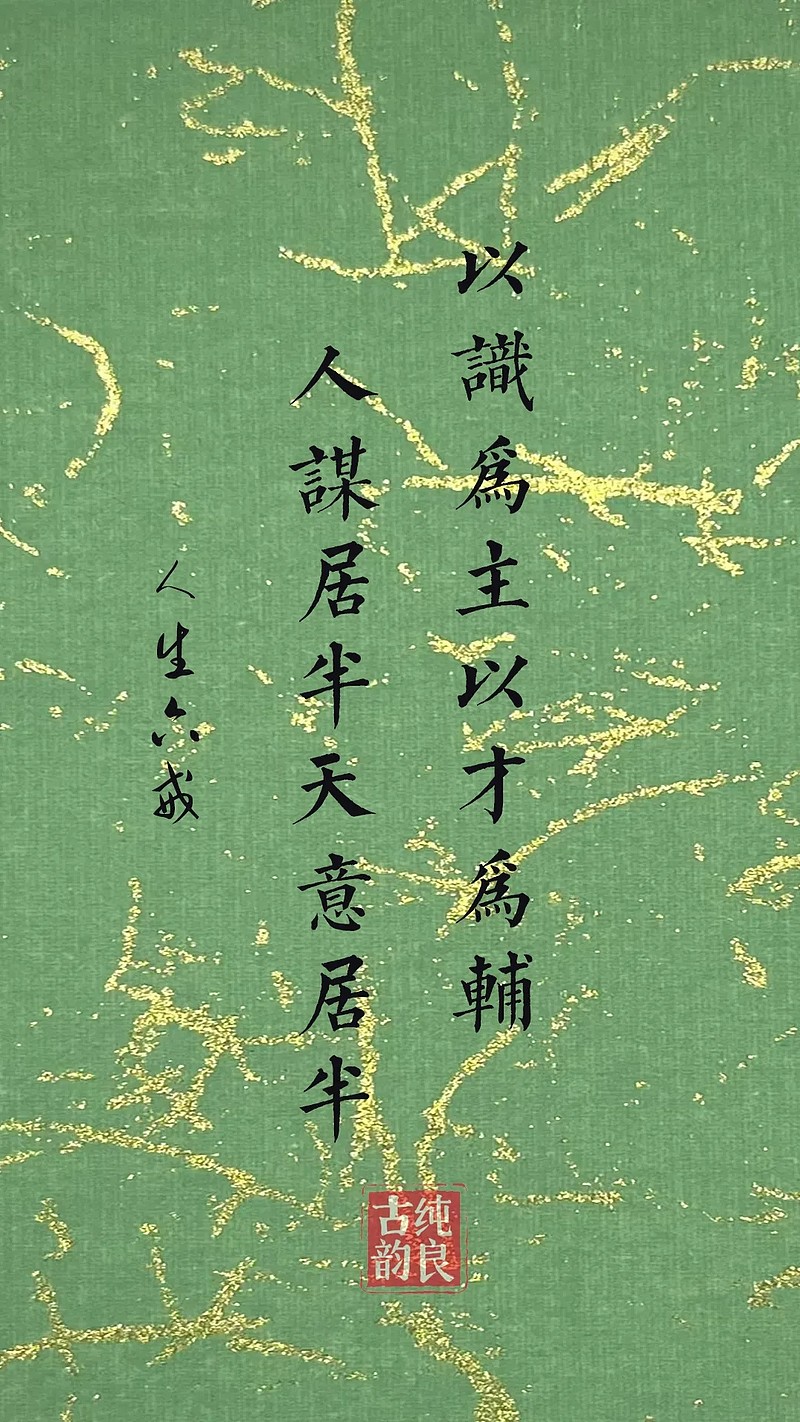 以識爲主以才爲輔
人謀居半天意居半
人生六戒
纯良
古韵